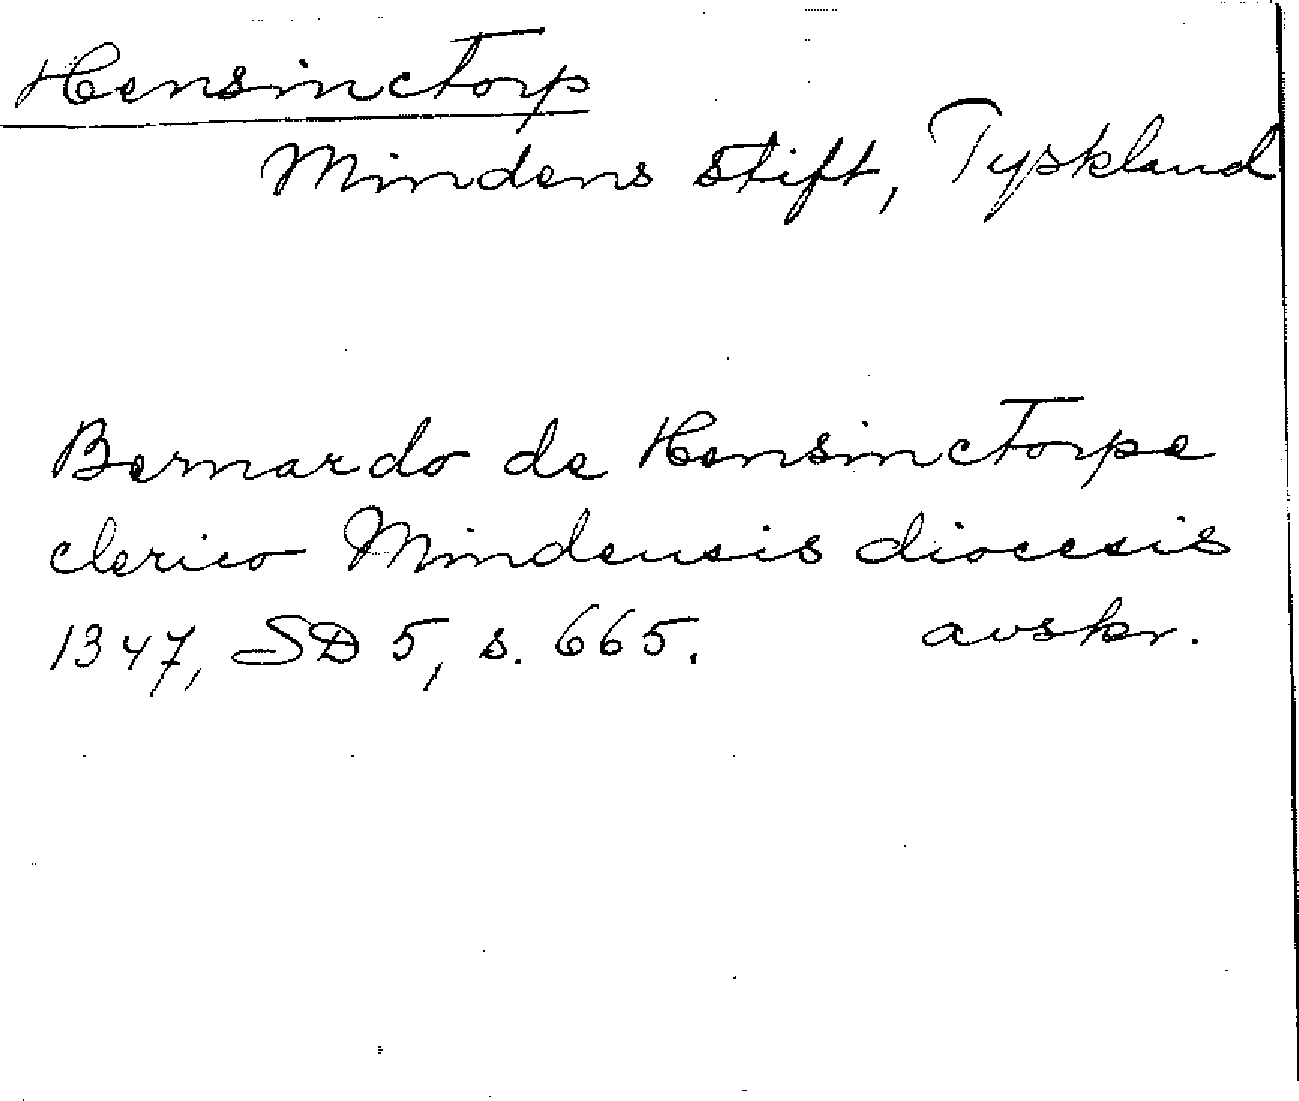 Hensinctorp
Mindens stift, Tyskland
Bernardo de Hensinctorpe
clerico Mindensis diocesis
1347, SD 5, s. 665. avskr.